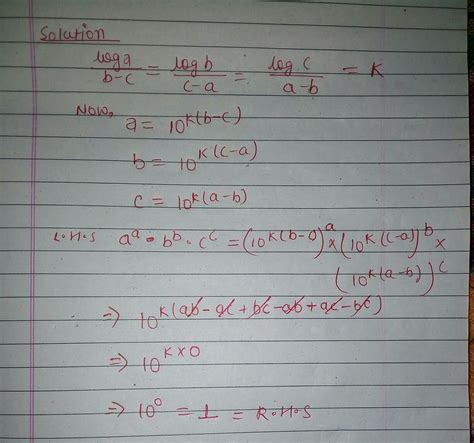 Solution
log a / b-c = log b / c-a = log c / a-b = K
Now,
a = 10^K(b-c)
b = 10^K(c-a)
c = 10^K(a-b)
L.H.S a^a · b^b · c^c = (10^K(b-c))^a × (10^K(c-a))^b ×
(10^K(a-b))^c
⇒ 10^K(ab - ac + bc - ab + ac - bc)
⇒ 10^K×0
⇒ 10^0 = 1 = R.H.S